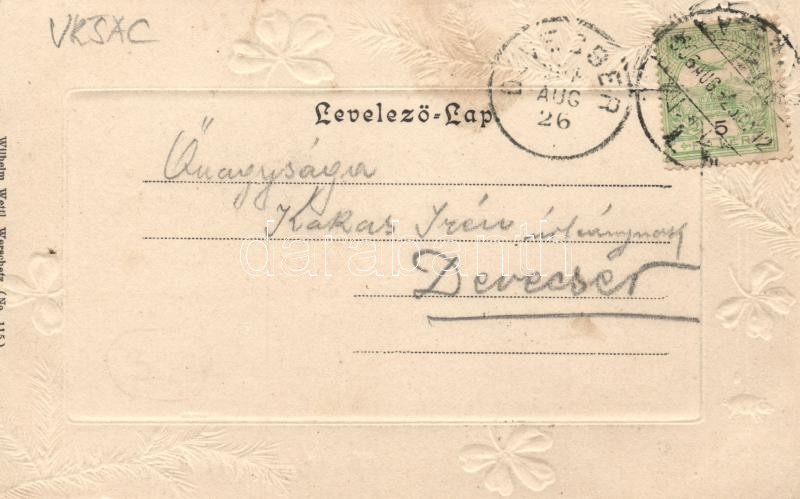 VRSAC
DEVECSER
AUG
26
Levelező-Lap
Őnagysága
Kakas Irén úrleánynak
Devecser
Wilhelm Wettl Werschetz (No. 115)
5
darabanth